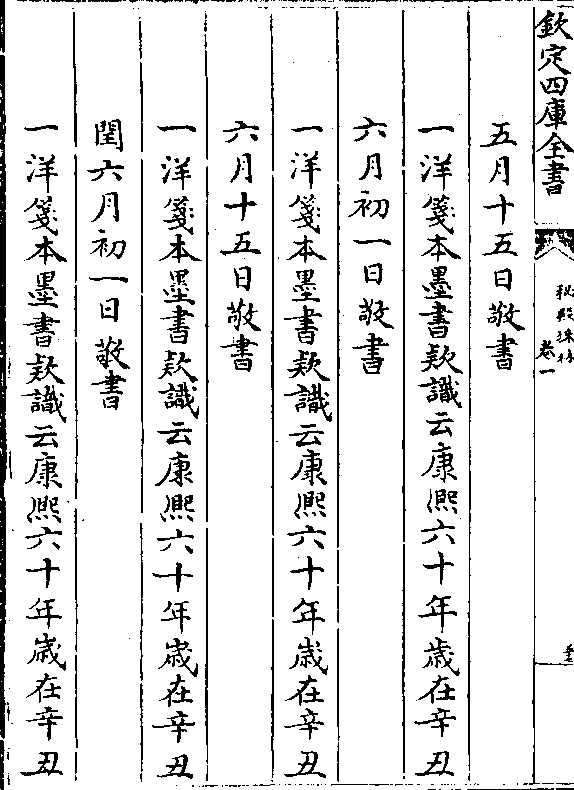 欽定四庫全書
秘殿珠林
卷一
五月十五日敬書
一洋箋本墨書欵識云康熈六十年歳在辛丑
六月初一日敬書
一洋箋本墨書欵識云康熈六十年歳在辛丑
六月十五日敬書
一洋箋本墨書欵識云康熈六十年歳在辛丑
閏六月初一日敬書
一洋箋本墨書欵識云康熈六十年歳在辛丑